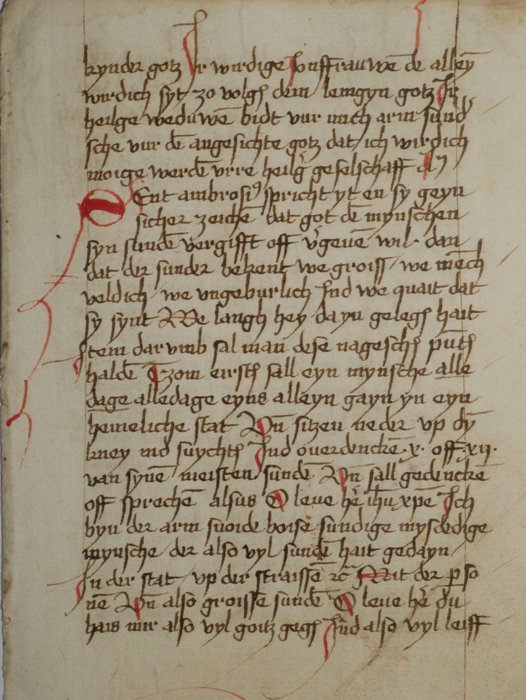 kynder gotz Ir wirdige Jonffrauwē de alleȳ
wirdich syt zo volgē dem lemgyn gotz Ir
heilge weduwen bidt vur mich arm sund
sche vur dē angesichte gotz dat ich wirdich
moige werdē vrre heilg geselschaff
Sent ambrosi9 spricht yt en sy geyn
sicher zeichē dat got dē mynschen
syn sundē vergifft off v'geuen wil · dan
dat der sunder bekent we groiss · we mēch
veldich · we vngeburlich Jnd we quait dat
sy synt We langh hey dayn gelegē hait
Item darvmb sal man dese nageschr pūtē
haldē Tzom eirstē sall eyn mynsche alle
dage alledage eyns alleyn gayn yn eyn
heimeliche stat Vn sitzen neder vp dy
kney Jnd ouerdenckē · x · off · xij ·
van synē meisten sundē Vn sall gedenckē
off sprechē alsus O leue he' ihu xpe Ich
byn der arm snoide boise sundige mysdedige
mynsche der also vyl sundē hait gedayn
Jn der stat vp der straissē Mit der p so
nē Vn also groisse sundē O leue he' du
hais mir also vyl goitz Jnd also vyl leiff